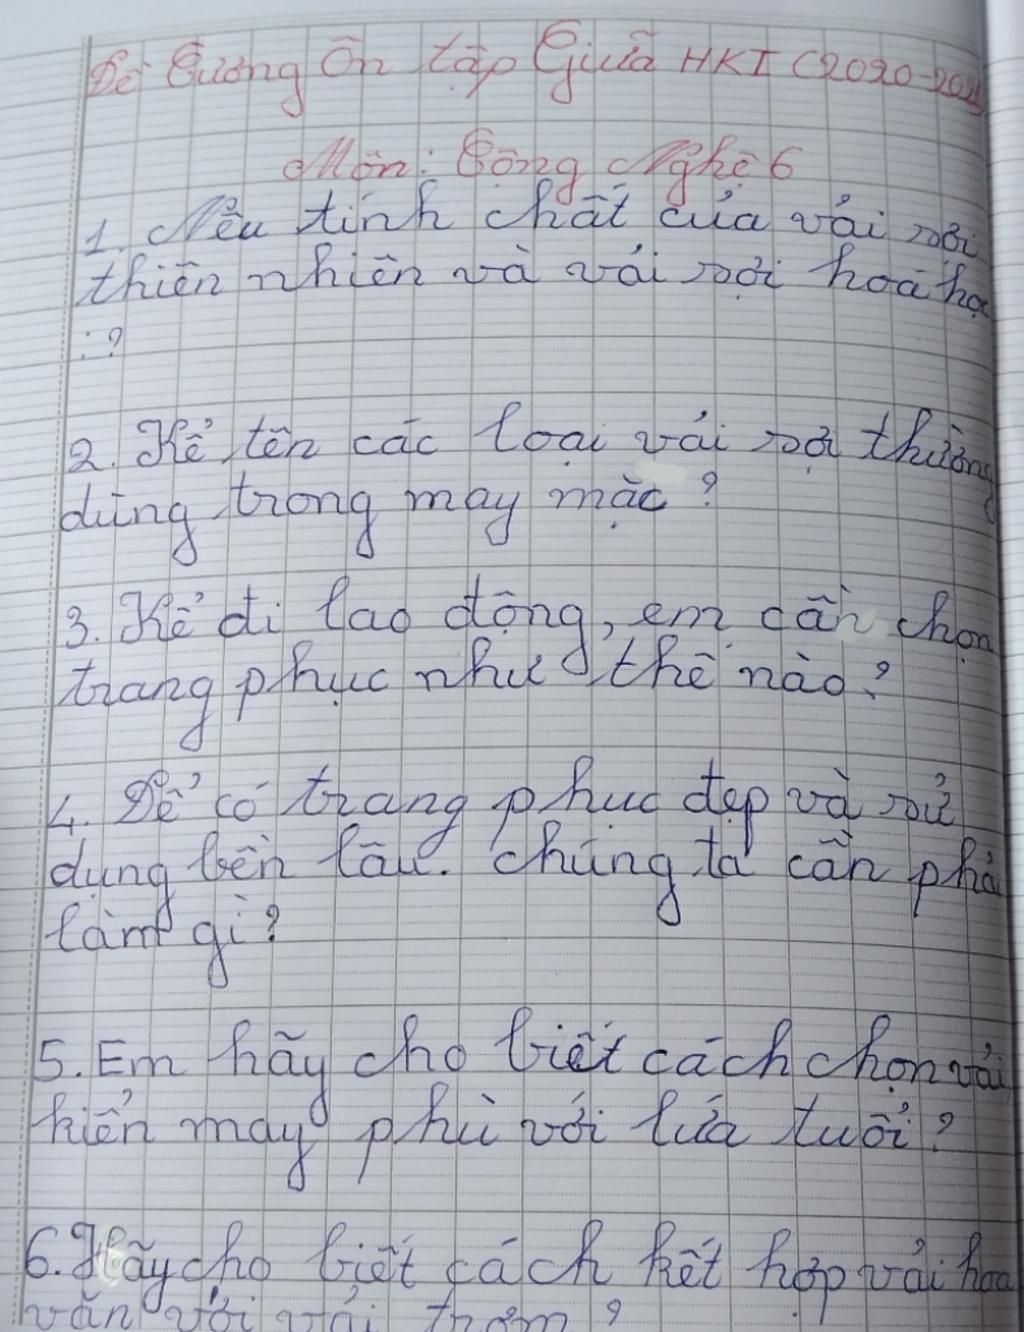 Đề Cương Ôn tập Giữa HKI (2020-2021
Môn: Công Nghệ 6
1. Nêu tính chất của vải sợi
thiên nhiên và vải sợi hoá học
:?
2. Kể tên các loại vải sợi thường
dùng trong may mặc?
3. Kể đi lao động, em cần chọn
trang phục như thế nào?
4. Để có trang phục đẹp và sử
dụng bền lâu. chúng ta cần phải
làm gì?
5. Em hãy cho biết cách chọn vải
kiểu may phù với lứa tuổi?
6. Hãy cho biết cách kết hợp vải hoa
văn với vải trơn?